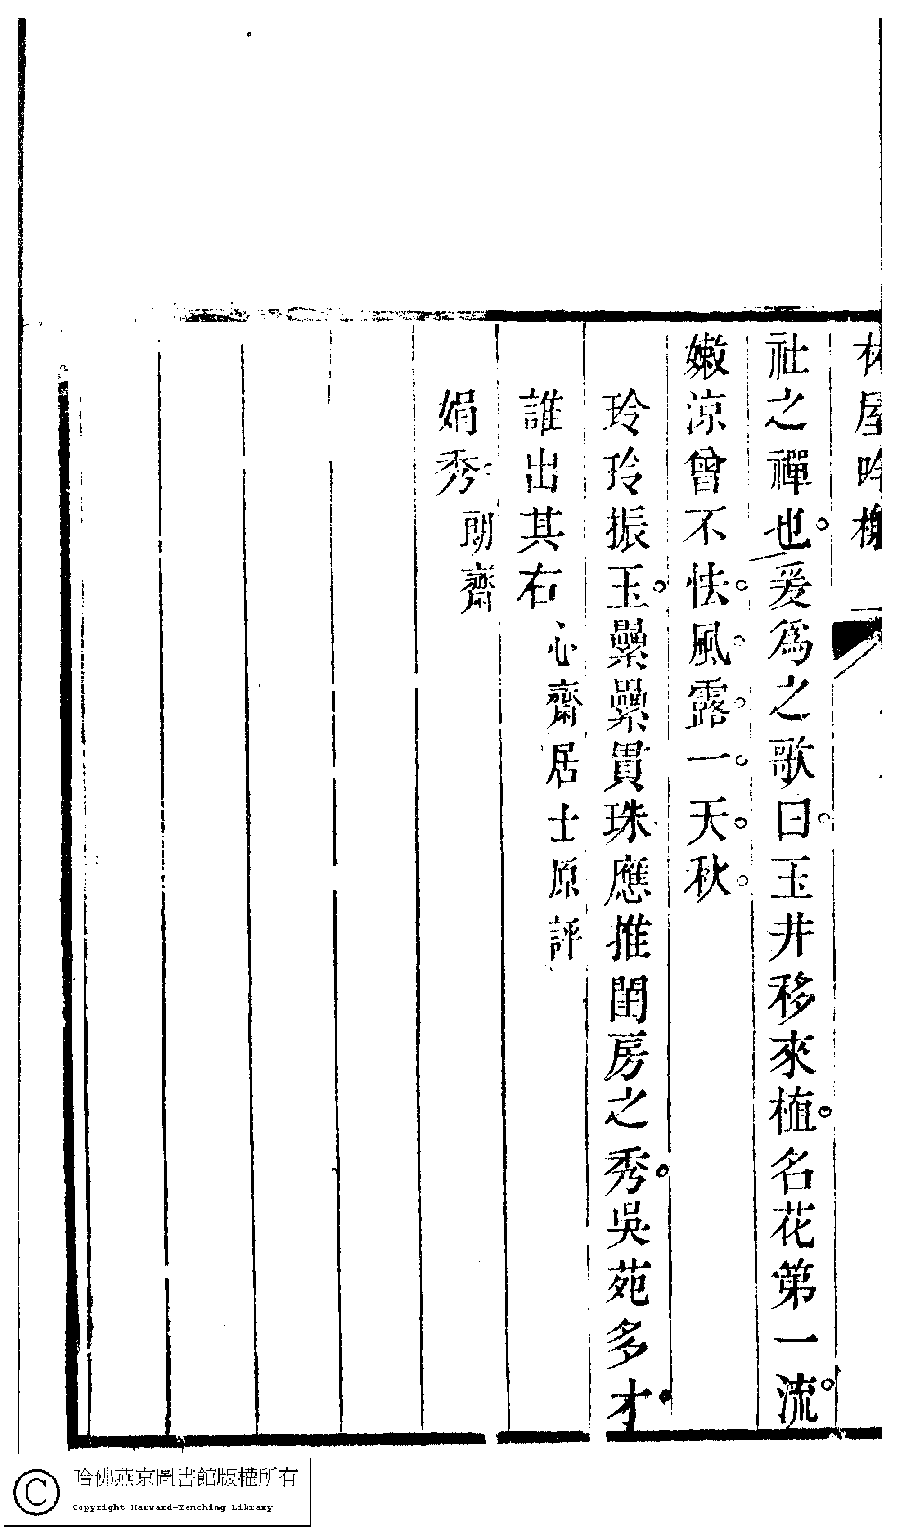 林屋吟榭
社之禪也。爰爲之歌曰。玉井移來植。名花第一流。
嫩涼曾不怯。風。露。一。天。秋。
玲玲振玉。纍纍貫珠應推閨房之秀。吳苑多才。
誰出其右 心齋居士原評
娟秀 朗齋
哈佛燕京圖書館版權所有
Copyright Harvard-Yenching Library